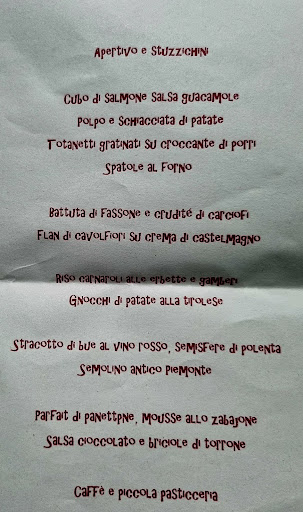 Apertivo e Stuzzichini
Cubo di Salmone Salsa Guacamole
Polpo e Schiacciata di patate
Totanetti gratinati su croccante di porri
Spatole al Forno
Battuta di Fassone e crudité di carciofi
Flan di cavolfiori su crema di castelmagno
Riso carnaroli alle erbette e gamberi
Gnocchi di patate alla tirolese
Stracotto di bue al vino rosso, semisfere di polenta
Semolino antico Piemonte
Parfait di panettpne, mousse allo zabajone
Salsa cioccolato e briciole di torrone
Caffè e piccola pasticceria